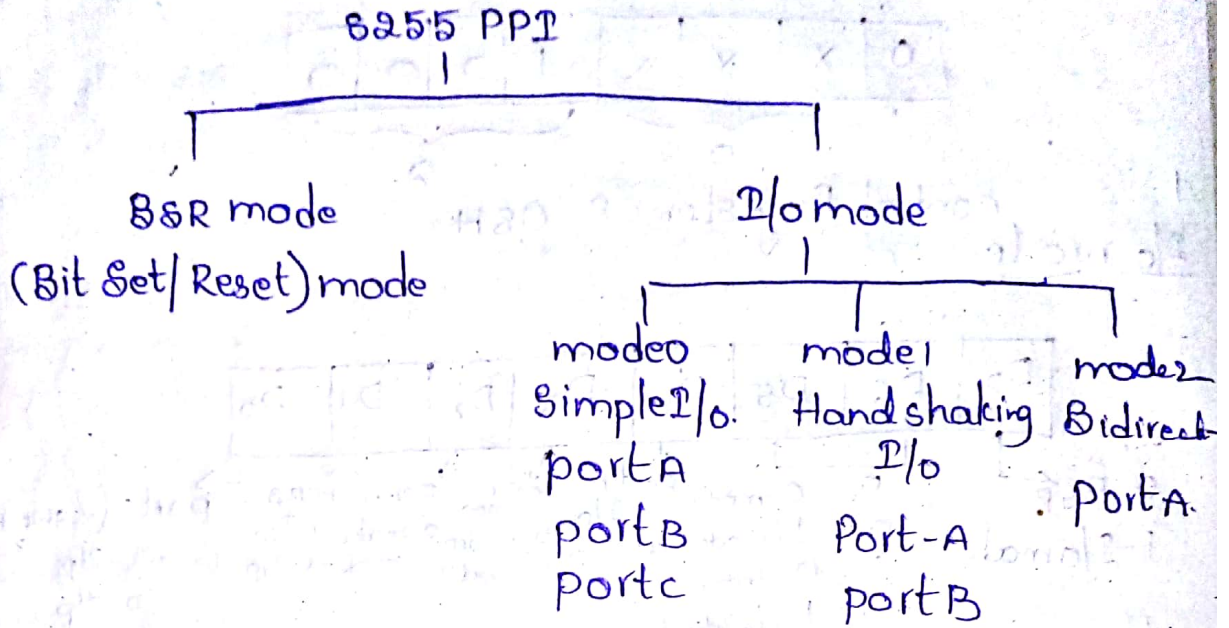 8255 PPI
BSR mode
(Bit Set/Reset) mode
I/o mode
mode0
Simple I/o.
port A
port B
port c
mode1
Handshaking
I/o
Port-A
port B
mode2
Bidirect
Port A.